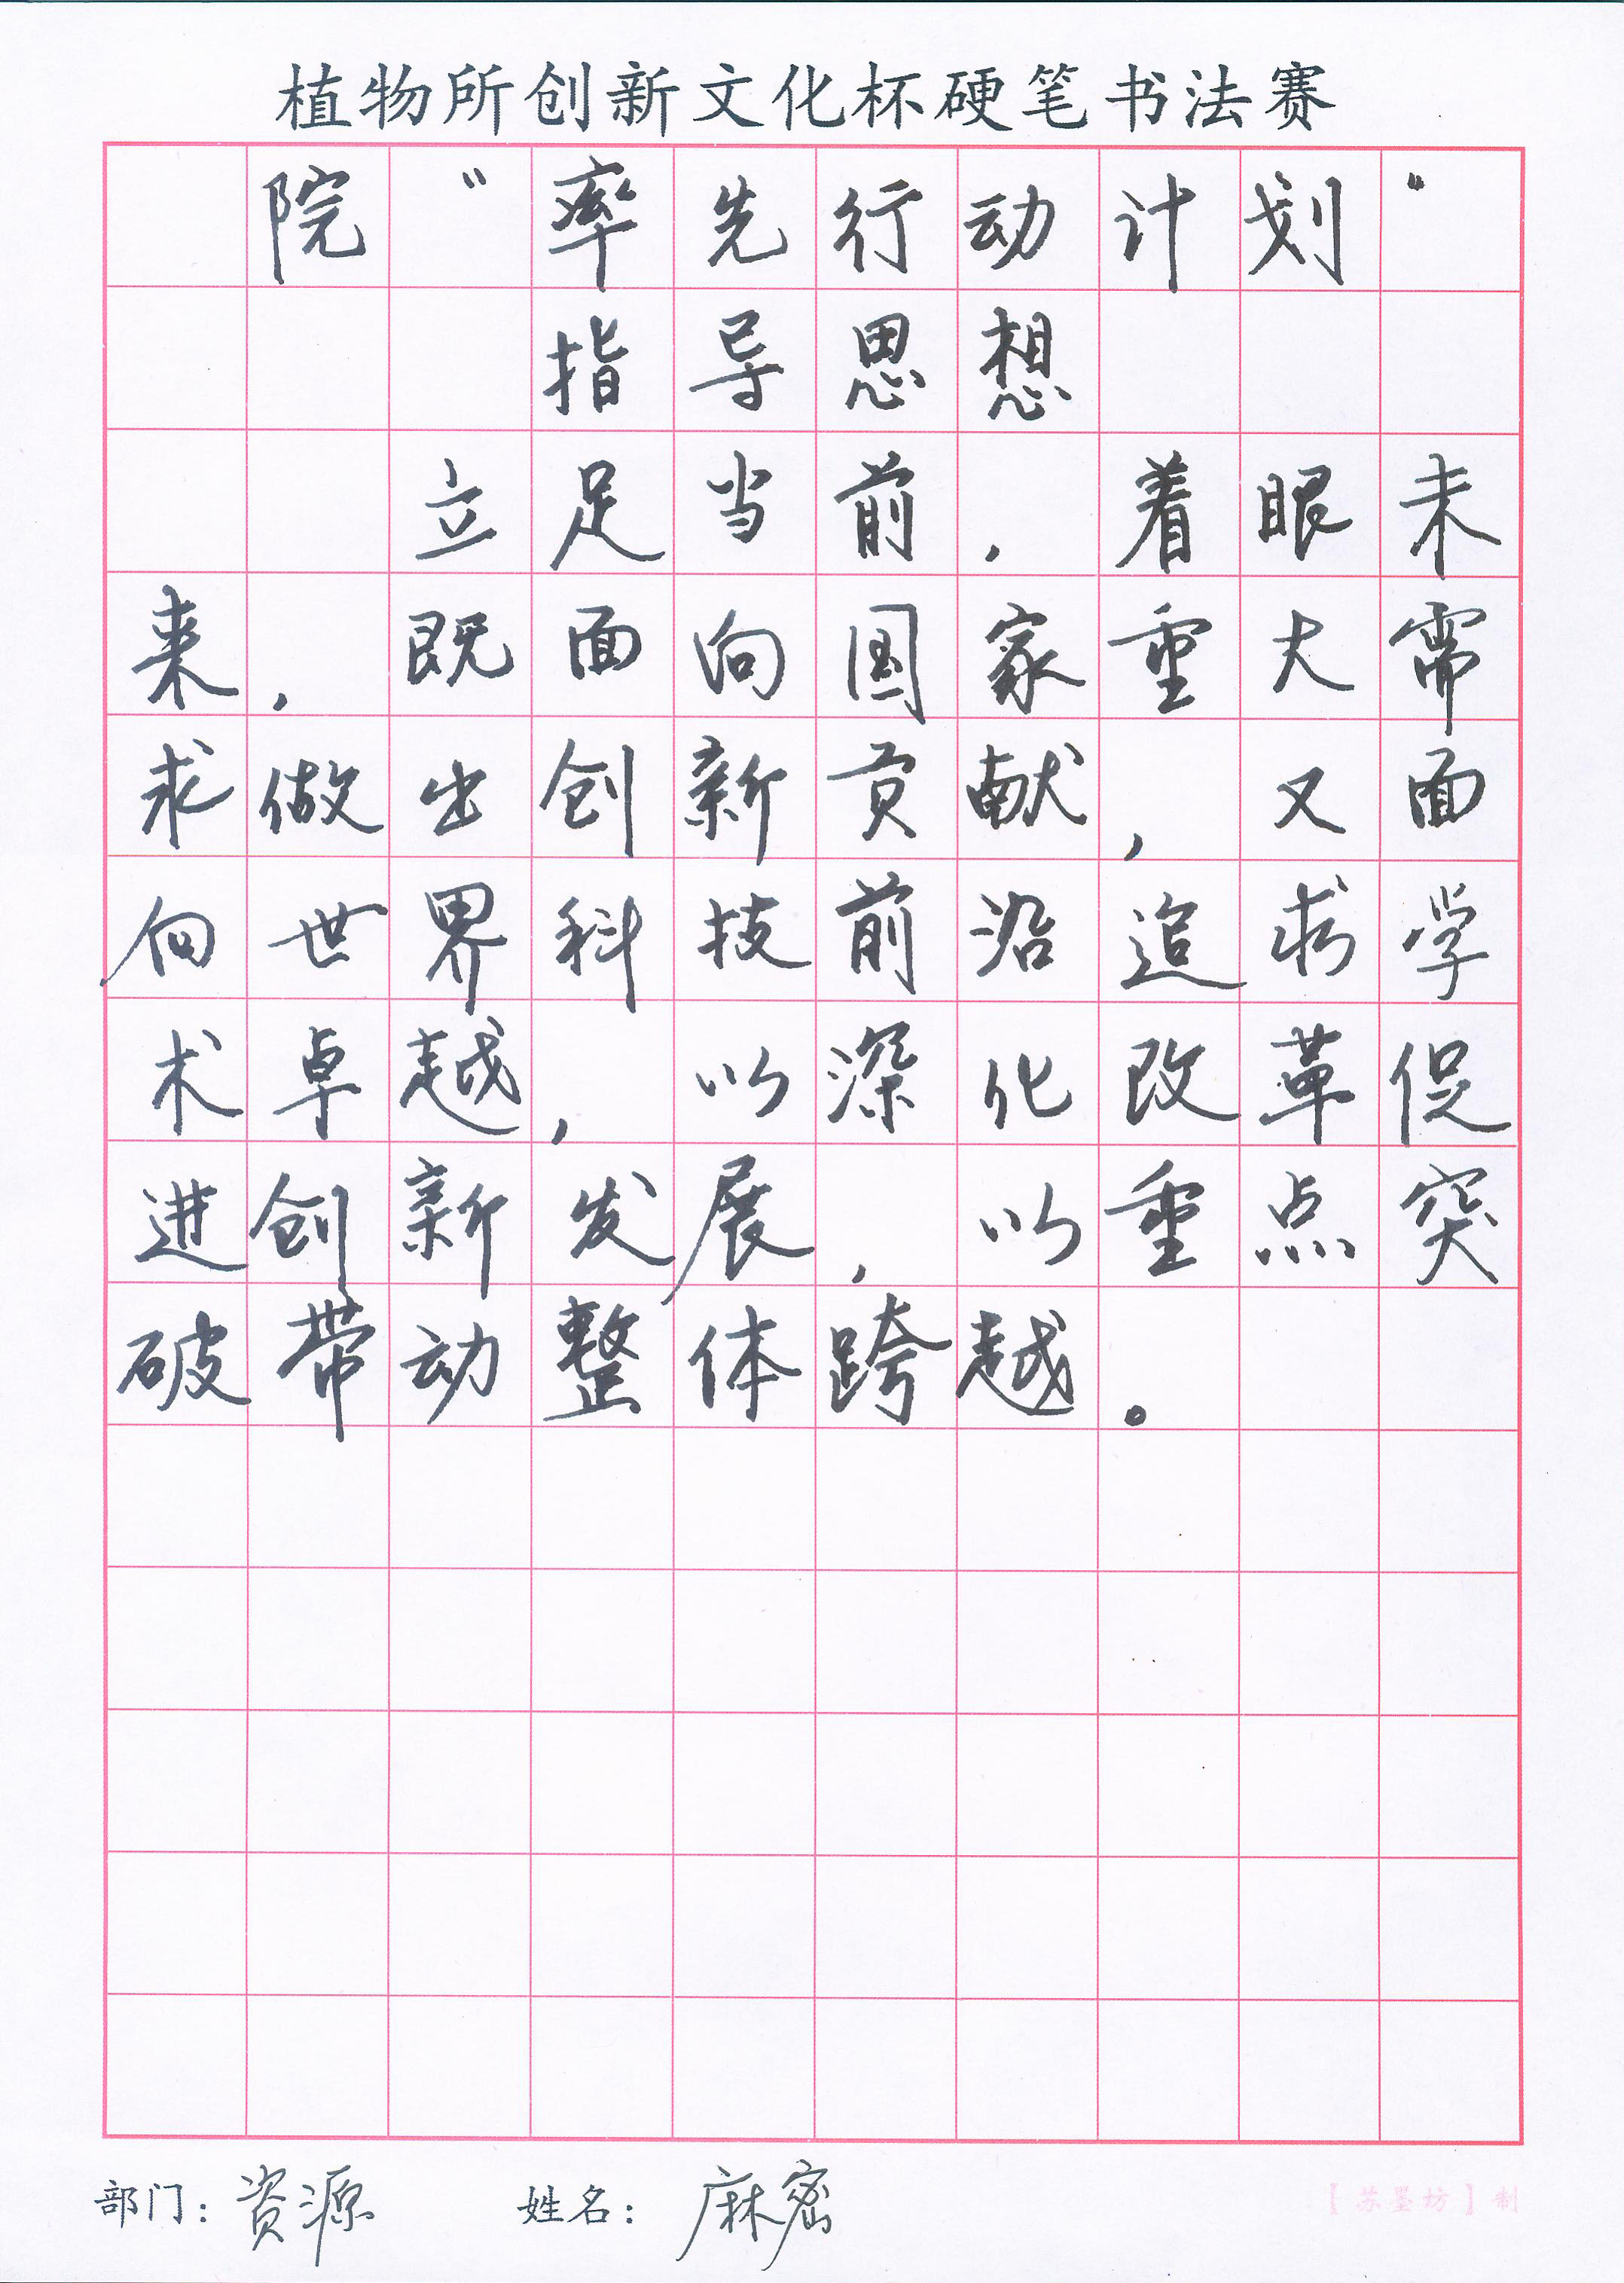 植物所创新文化杯硬笔书法赛
院“率先行动计划”
指导思想
立足当前，着眼未
来，既面向国家重大需
求做出创新贡献，又面
向世界科技前沿追求学
术卓越，以深化改革促
进创新发展，以重点突
破带动整体跨越。
部门：资源 姓名：麻密
【苏墨坊】制